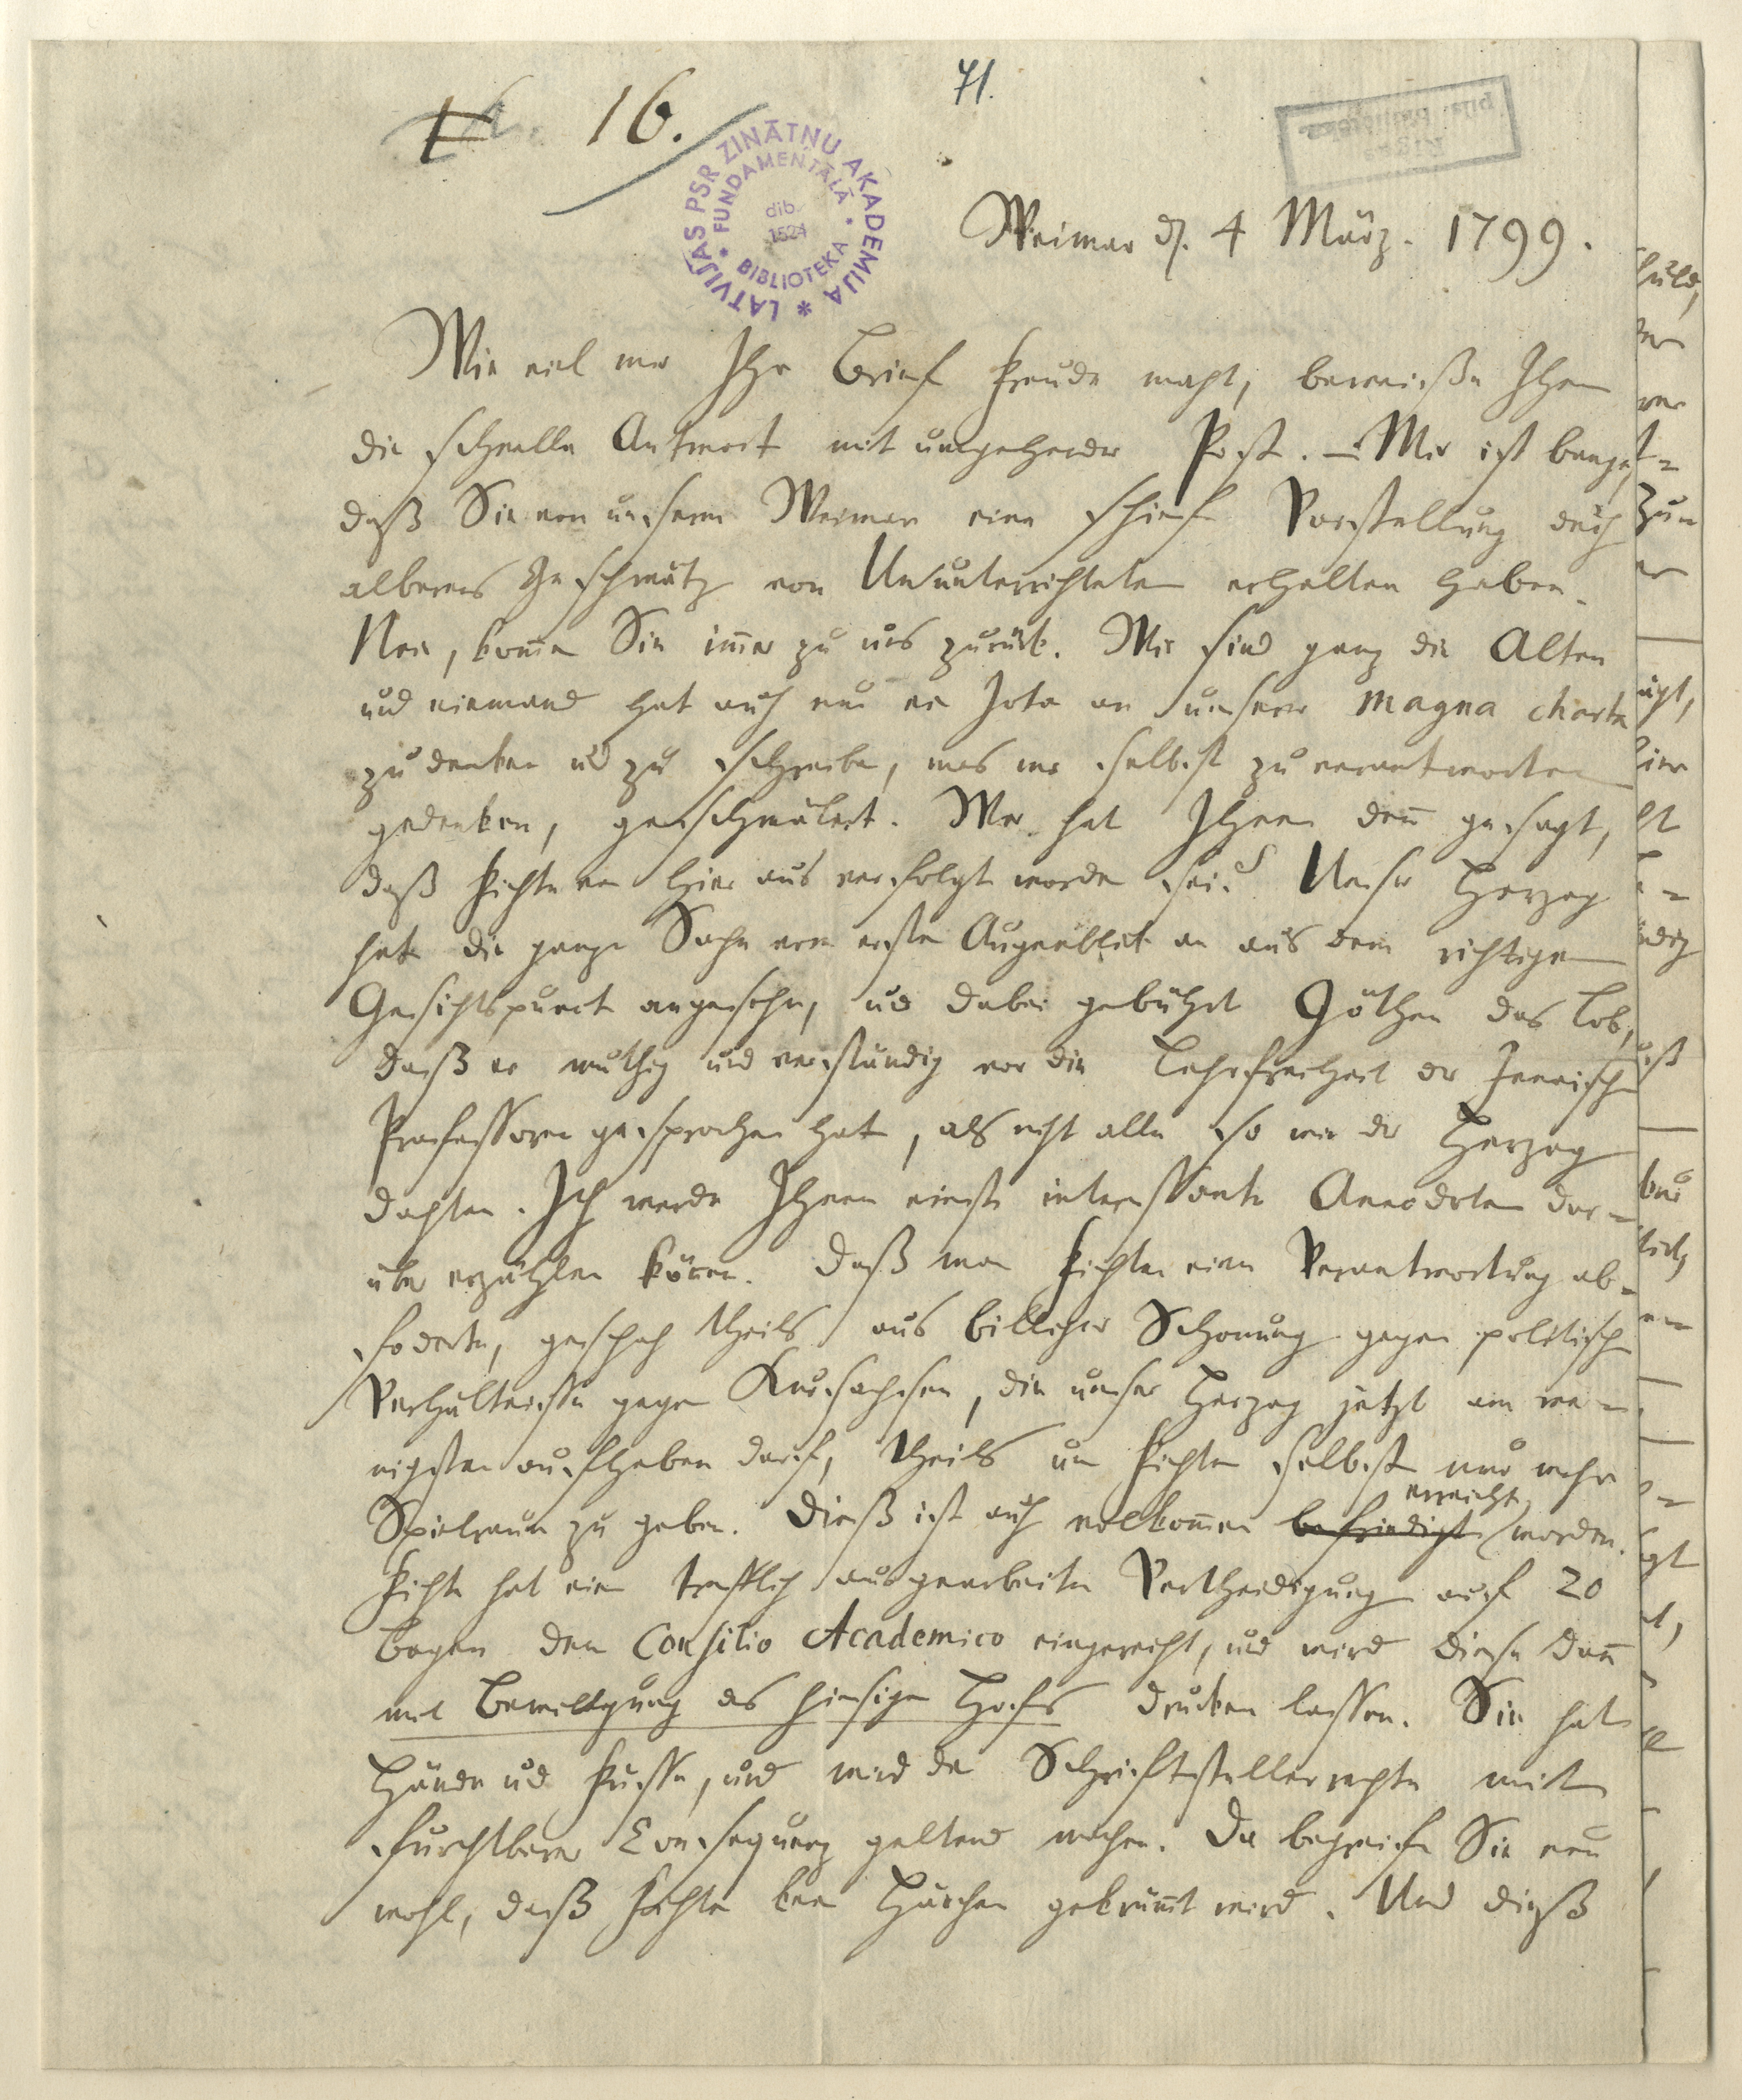 16.
71.
LATVIJAS PSR ZINĀTŅU AKADEMIJA *
• FUNDAMENTĀLĀ • BIBLIOTEKA
dib. 1524
Rīgas
pils. bibliotēka
Weimar d. 4 März. 1799.
Wie viel mir Ihr Brief Freude macht, beweiße Ihnen
die schnelle Antwort mit umgehender Post. – Mir ist bange,
daß Sie von unserm Weimar eine schiefe Vorstellung durch
albernes Geschwätz von Ununterrichteten erhalten haben.
Nein, kom̄en Sie im̄er zu uns zurück. Wir sind ganz die Alten
und niemand hat auch nur ein Jota an unserer magna charta
zu denken und zu schreiben, was wir selbst zu verantworten
gedenken, geschmälert. Wer hat Ihnen den̄ gesagt,
daß Fichte von hier aus verfolgt worden sei? Unser Herzog
hat die ganze Sache vom ersten Augenblick an aus dem richtigen
Gesichtspunct angesehn, und dabei gebührt Göthen das Lob,
daß er muthig und verständig vor die Lehrfreiheit der Jenaischen
Professoren gesprochen hat, als nicht alle so wie der Herzog
dachten. Ich werde Ihnen einst interessante Anecdoten dar-
über erzählen kön̄en. Daß man Fichten eine Verantwortung ab-
foderte, geschah theils aus billicher Schonung gegen politische
Verhältnisse gegen Kursachsen, die unser Herzog jetzt am we-
nigsten aufheben darf, theils um Fichten selbst nur mehr
Spielraum zu geben. Dieß ist auch vollkom̄en befriedigt erreicht worden.
Fichte hat eine trefflich ausgearbeitete Vertheidigung auf 20
Bogen dem Consilio Academico eingereicht, und wird diese dan̄
mit Bewilligung des hiesigen Hofes drucken lassen. Sie hat
Hände und Füsse, und wird die Schriftstellerrechte mit
furchtbarer Consequenz geltend machen. Da begreifen Sie nun
wohl, daß Fichten kein Härchen gekrüm̄t wird. Und dieß